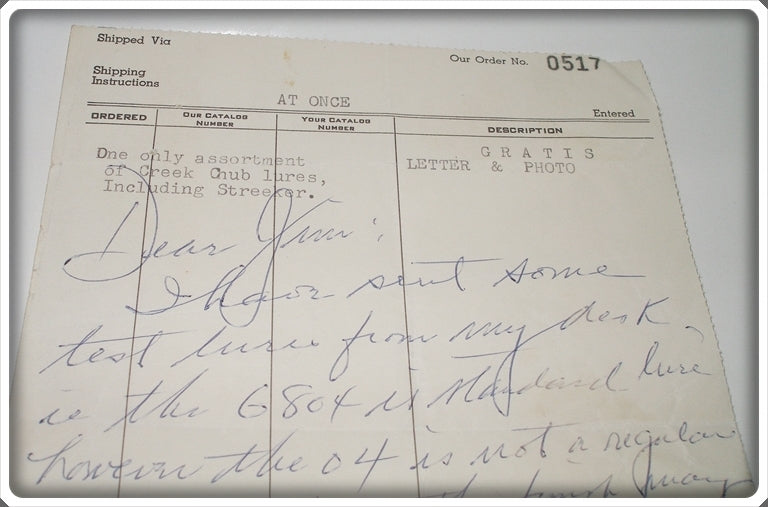 Shipped Via
Our Order No. 0517
Shipping
Instructions
AT ONCE
Entered
ORDERED
OUR CATALOG
NUMBER
YOUR CATALOG
NUMBER
DESCRIPTION
One only assortment
of Creek Chub lures,
Including Streeker.
G R A T I S
LETTER & PHOTO
Dear Jim:
I have sent some
test lures from my desk,
ie the 6804 is standard lure
however the 04 is not a regular